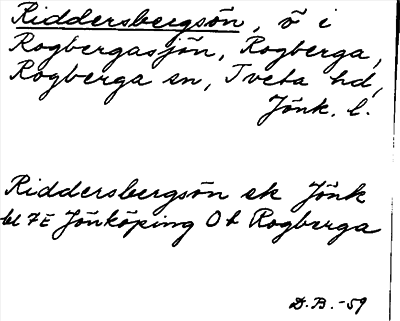 Riddersbergsön, ö i
Rogbergasjön, Rogberga,
Rogberga sn, Tveta hd,
Jönk. l.
Riddersbergsön ek Jönk
bl 7E Jönköping Ob Rogberga
D.B.-59